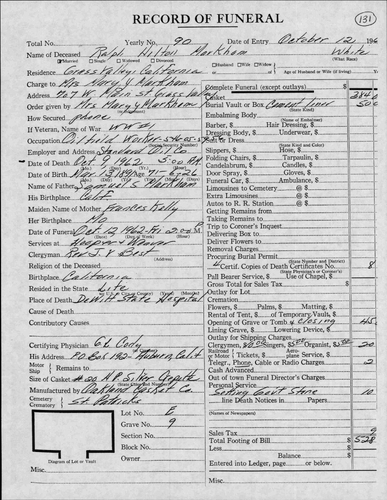 RECORD OF FUNERAL
131
Total No. Yearly No. 90 Date of Entry October 12, 196
Name of Deceased Ralph Hilton Markham White
Married Single Widowed Divorced Husband Wife Widow (What Race)
Residence Grass Valley, California Age of Husband or Wife (if living)
Charge to Mrs Mary V Markham
Address 407 W. Main St Grass Val
Order given by Mrs Mary V Markham
How Secured phone
If Veteran, War of WW 2
Occupation Oilfield Worker
Employer and Address Standard Oil Co
Date of Death Oct 9 1962 5:00 AM
Date of Birth Mar 13 1891 Age 71-6-26
Name of Father Samuel S Markham
His Birthplace Calif
Maiden Name of Mother Frances Kelly
Her Birthplace Mo
Date of Funeral Oct 12 1962 Fri 2:00
Services at Hooper & Weaver
Clergyman Rev J V Best
Religion of the Deceased
Birthplace California
Resided in the State Life
Place of Death DeWitt State Hospital
Cause of Death
Contributory Causes
Certifying Physician G L Cody
His Address P.O. Box 192 - Auburn, Calif
Motor Ship Remains to
Size of Casket
Manufactured by Oakland Casket Co
Cemetery Crematory St. Patricks
Lot No. E
Grave No. 9
Section No.
Block No.
Owner
Diagram of Lot or Vault
Misc.
Complete Funeral (except outlays) $
Casket
Burial Vault or Box Cement Liner 50
Embalming Body
(Name of Embalmer)
Barber, Hair Dressing, $
Dressing Body, $ Underwear, $
Dress
(State Kind and Color)
Slippers, $ Hose, $
Folding Chairs, $ Tarpaulin, $
Candelabrum, $ Candles, $
Door Spray, $ Gloves, $
Funeral Car, $ Ambulance, $
Limousines to Cemetery @ $
Extra Limousines @ $
Autos to R. R. Station @ $
Getting Remains from
Taking Remains to
Trip to Coroner's Inquest
Delivering Box to
Deliver Flowers to
Removal Charges
Procuring Burial Permit
4 Cert. Copies of Death Certificates No. 8
Pall Bearer Service, $ Use of Chapel, $
Gross Total for Sales Tax $
Outlay for Lot
Flowers, $ Palms, $ Matting, $
Rental of Tent, $ of Temporary Vault, $
Opening of Grave or Tomb & Closing 45
Lining Grave, $ Lowering Device, $
Outlay for Shipping Charges
Clergymen, Singers, $5 Organist, $ 20
Railroad or Motor Tickets, $ Aeroplane Service, $
Telgr., Phone, Cable or Radio Charges 2
Cash Advanced
Out of Town Funeral Director's Charges
Personal Service
Setting Govt Stone 10
line Death Notices in Papers
(Names of Newspapers)
Sales Tax 9
Total Footing of Bill $ 528
Less $
Balance $
Entered into Ledger, page or below.
Misc.